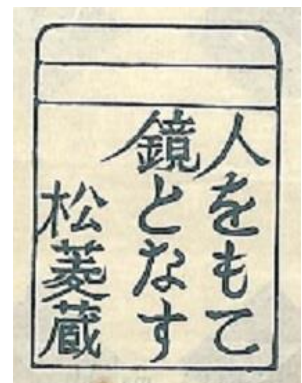 人をもて
鏡となす
松菱蔵